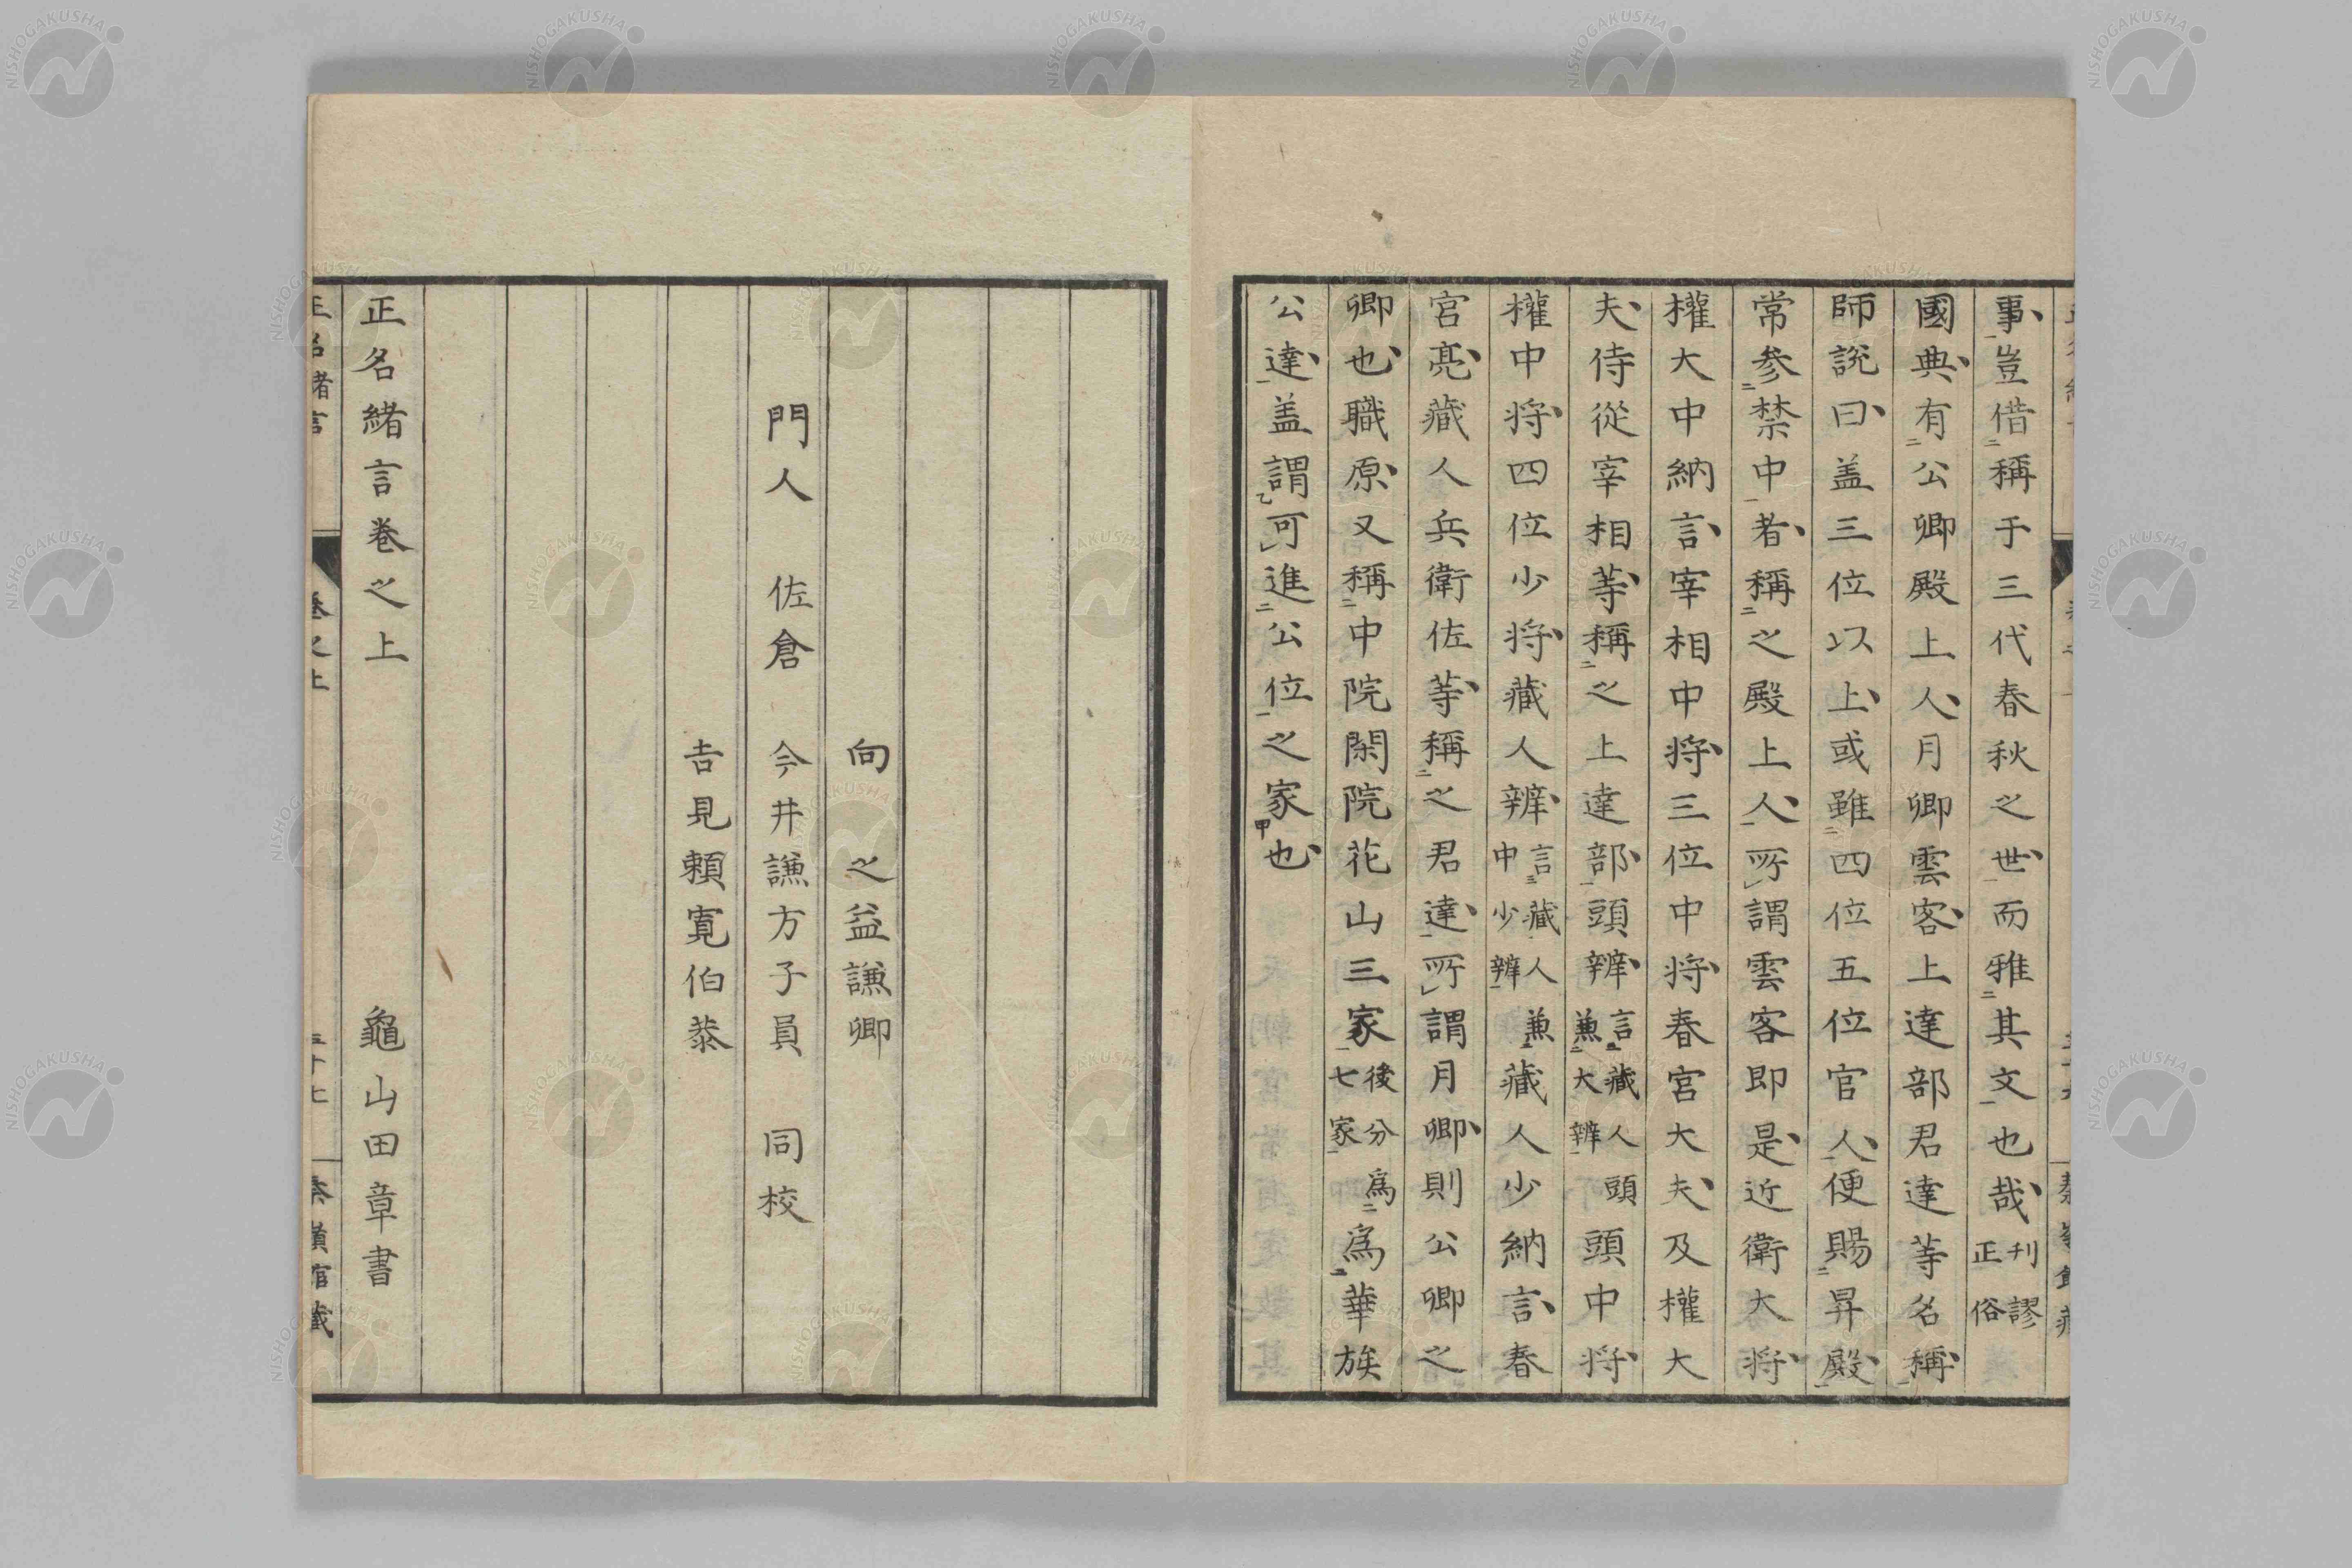 事豈借稱于三代春秋之世而雅其文也哉刊謬正俗
國典有公卿殿上人月卿雲客上達部君達等名稱
師說曰盖三位以上或雖四位五位官人便賜昇殿
常参禁中者稱之殿上人所謂雲客即是近衛大將
權大中納言宰相中將三位中將春宮大夫及權大
夫侍從宰相等稱之上達部頭辨言藏人頭兼大辨頭中將
權中將四位少將藏人辨言藏人兼中少辨藏人少納言春
宮亮藏人兵衛佐等稱之君達所謂月卿則公卿之
卿也職原又稱中院閑院花山三家後分爲七家爲華族
公達盖謂可進公位之家也
向之益謙卿
門人 佐倉 今井謙方子員 同校
吉見頼寛伯恭
正名緒言巻之上 龜山田章書
正名緒言 巻之上
NISHOGAKUSHA